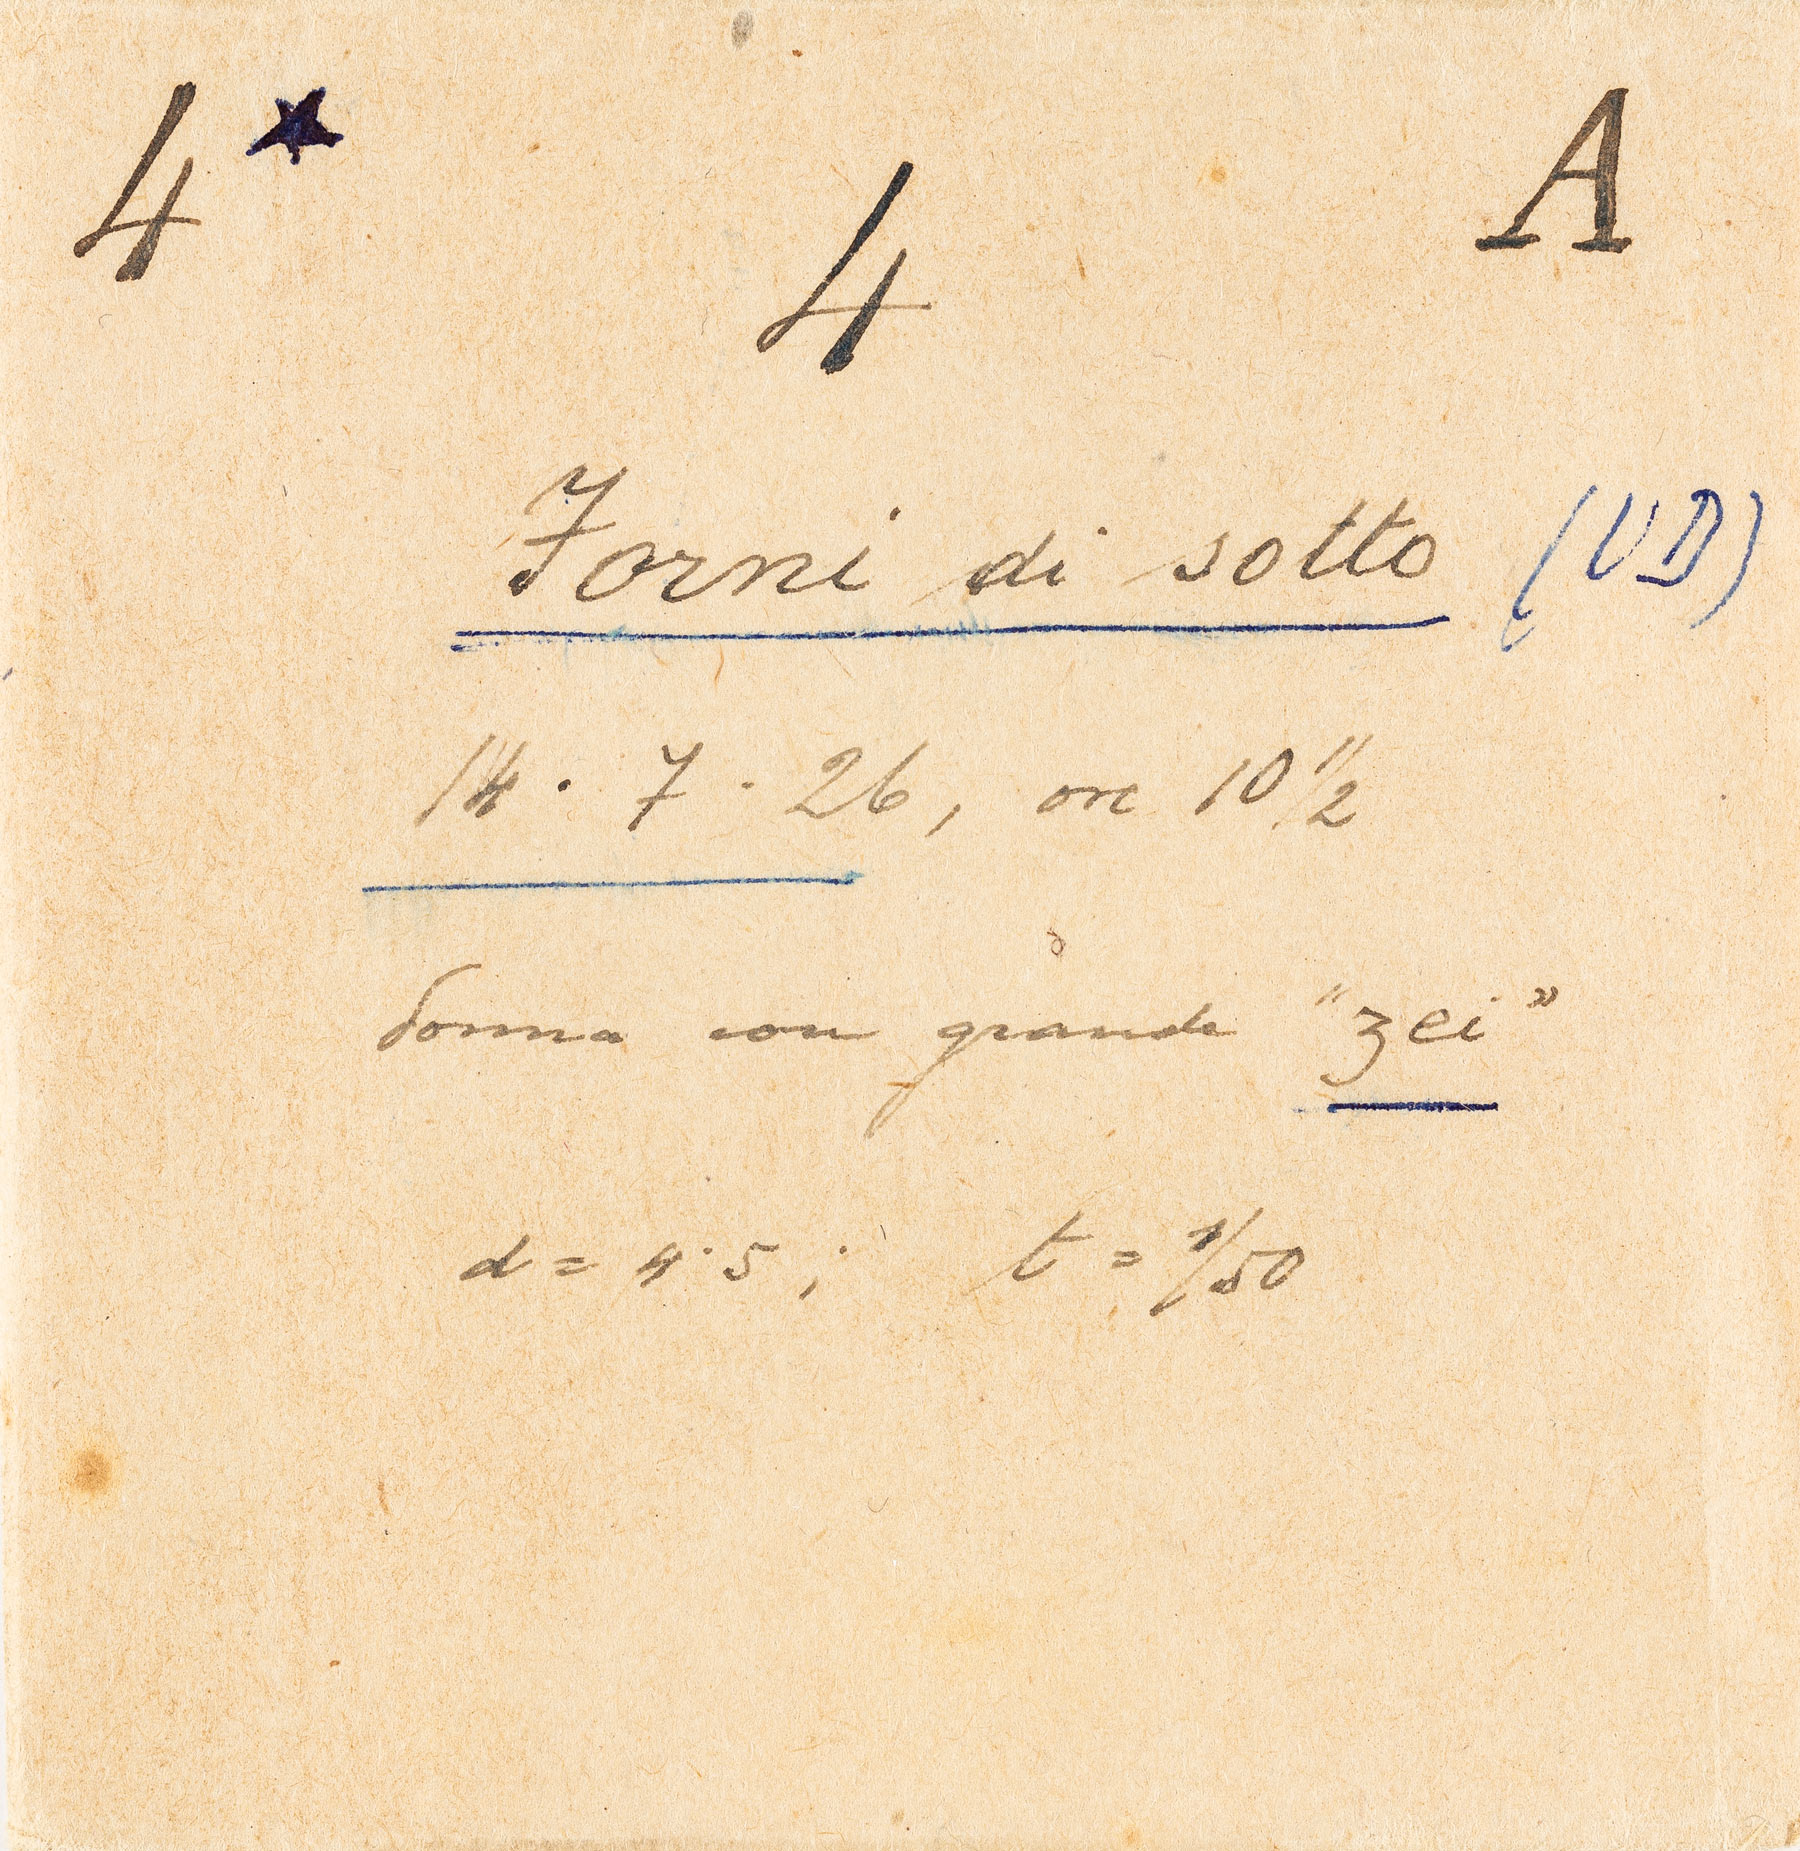 4★ 4 A
Forni di sotto (UD)
14·7·26, ore 10 1/2
donna con grande "zei"
d = 4·5; t = 1/50